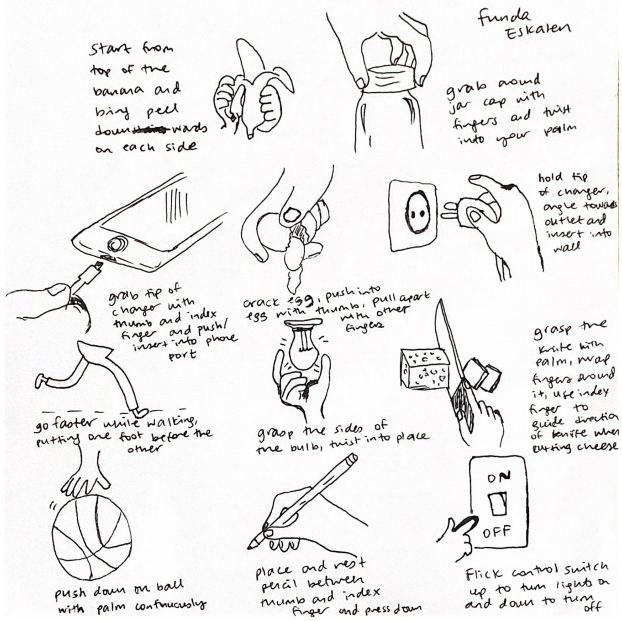 Funda
Eskaten
Start from
top of the
banana and
bring peel
downwards
on each side
grab around
jar cap with
fingers and twist
into your palm
grab tip of
charger with
thumb and index
finger and push/
insert into phone
port
crack egg, push into
egg with thumb, pull apart
with other
fingers
hold tip
of charger,
angle towards
outlet and
insert into
wall
go faster while walking,
putting one foot before the
other
grasp the sides of
the bulb, twist into place
grasp the
knife with
palm, wrap
fingers around
it, use index
finger to
guide direction
of knife when
cutting cheese
push down on ball
with palm continuously
place and rest
pencil between
thumb and index
finger and press down
ON
OFF
Flick control switch
up to turn lights on
and down to turn
off